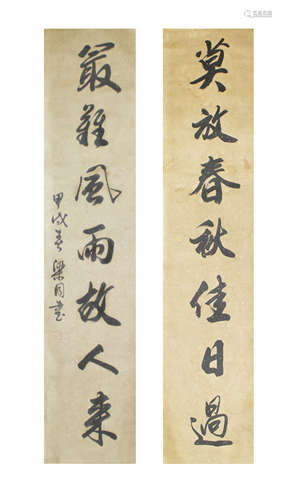 莫放春秋佳日過
最難風雨故人來
甲戌春 梁同書